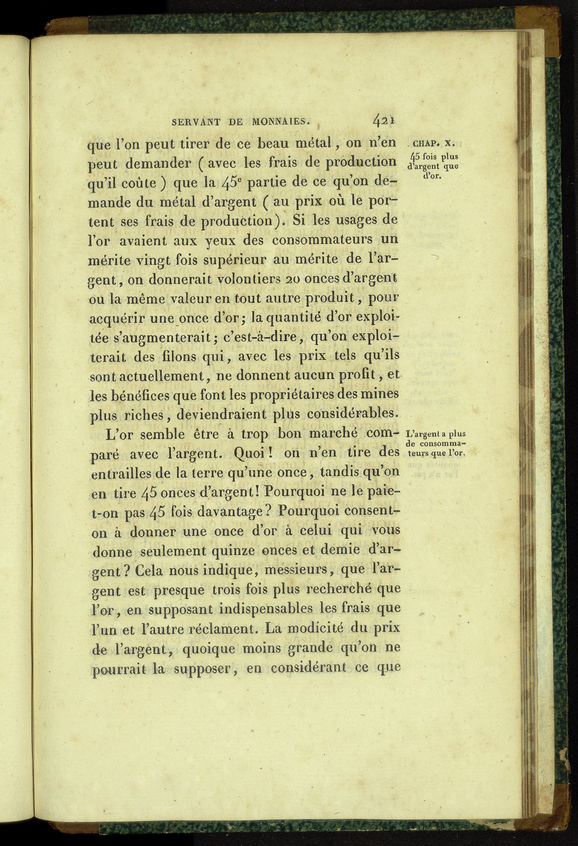 SERVANT DE MONNAIES. 421
que l'on peut tirer de ce beau métal, on n'en
peut demander (avec les frais de production
qu'il coûte) que la 45e partie de ce qu'on de-
mande du métal d'argent (au prix où le por-
tent ses frais de production). Si les usages de
l'or avaient aux yeux des consommateurs un
mérite vingt fois supérieur au mérite de l'ar-
gent, on donnerait volontiers 20 onces d'argent
ou la même valeur en tout autre produit, pour
acquérir une once d'or; la quantité d'or exploi-
tée s'augmenterait; c'est-à-dire, qu'on exploi-
terait des filons qui, avec les prix tels qu'ils
sont actuellement, ne donnent aucun profit, et
les bénéfices que font les propriétaires des mines
plus riches, deviendraient plus considérables.
L'or semble être à trop bon marché com-
paré avec l'argent. Quoi! on n'en tire des
entrailles de la terre qu'une once, tandis qu'on
en tire 45 onces d'argent! Pourquoi ne le paie-
t-on pas 45 fois davantage? Pourquoi consent-
on à donner une once d'or à celui qui vous
donne seulement quinze onces et demie d'ar-
gent? Cela nous indique, messieurs, que l'ar-
gent est presque trois fois plus recherché que
l'or, en supposant indispensables les frais que
l'un et l'autre réclament. La modicité du prix
de l'argent, quoique moins grande qu'on ne
pourrait la supposer, en considérant ce que
CHAP. X.
45 fois plus
d'argent que
d'or.
L'argent a plus
de consomma-
teurs que l'or.